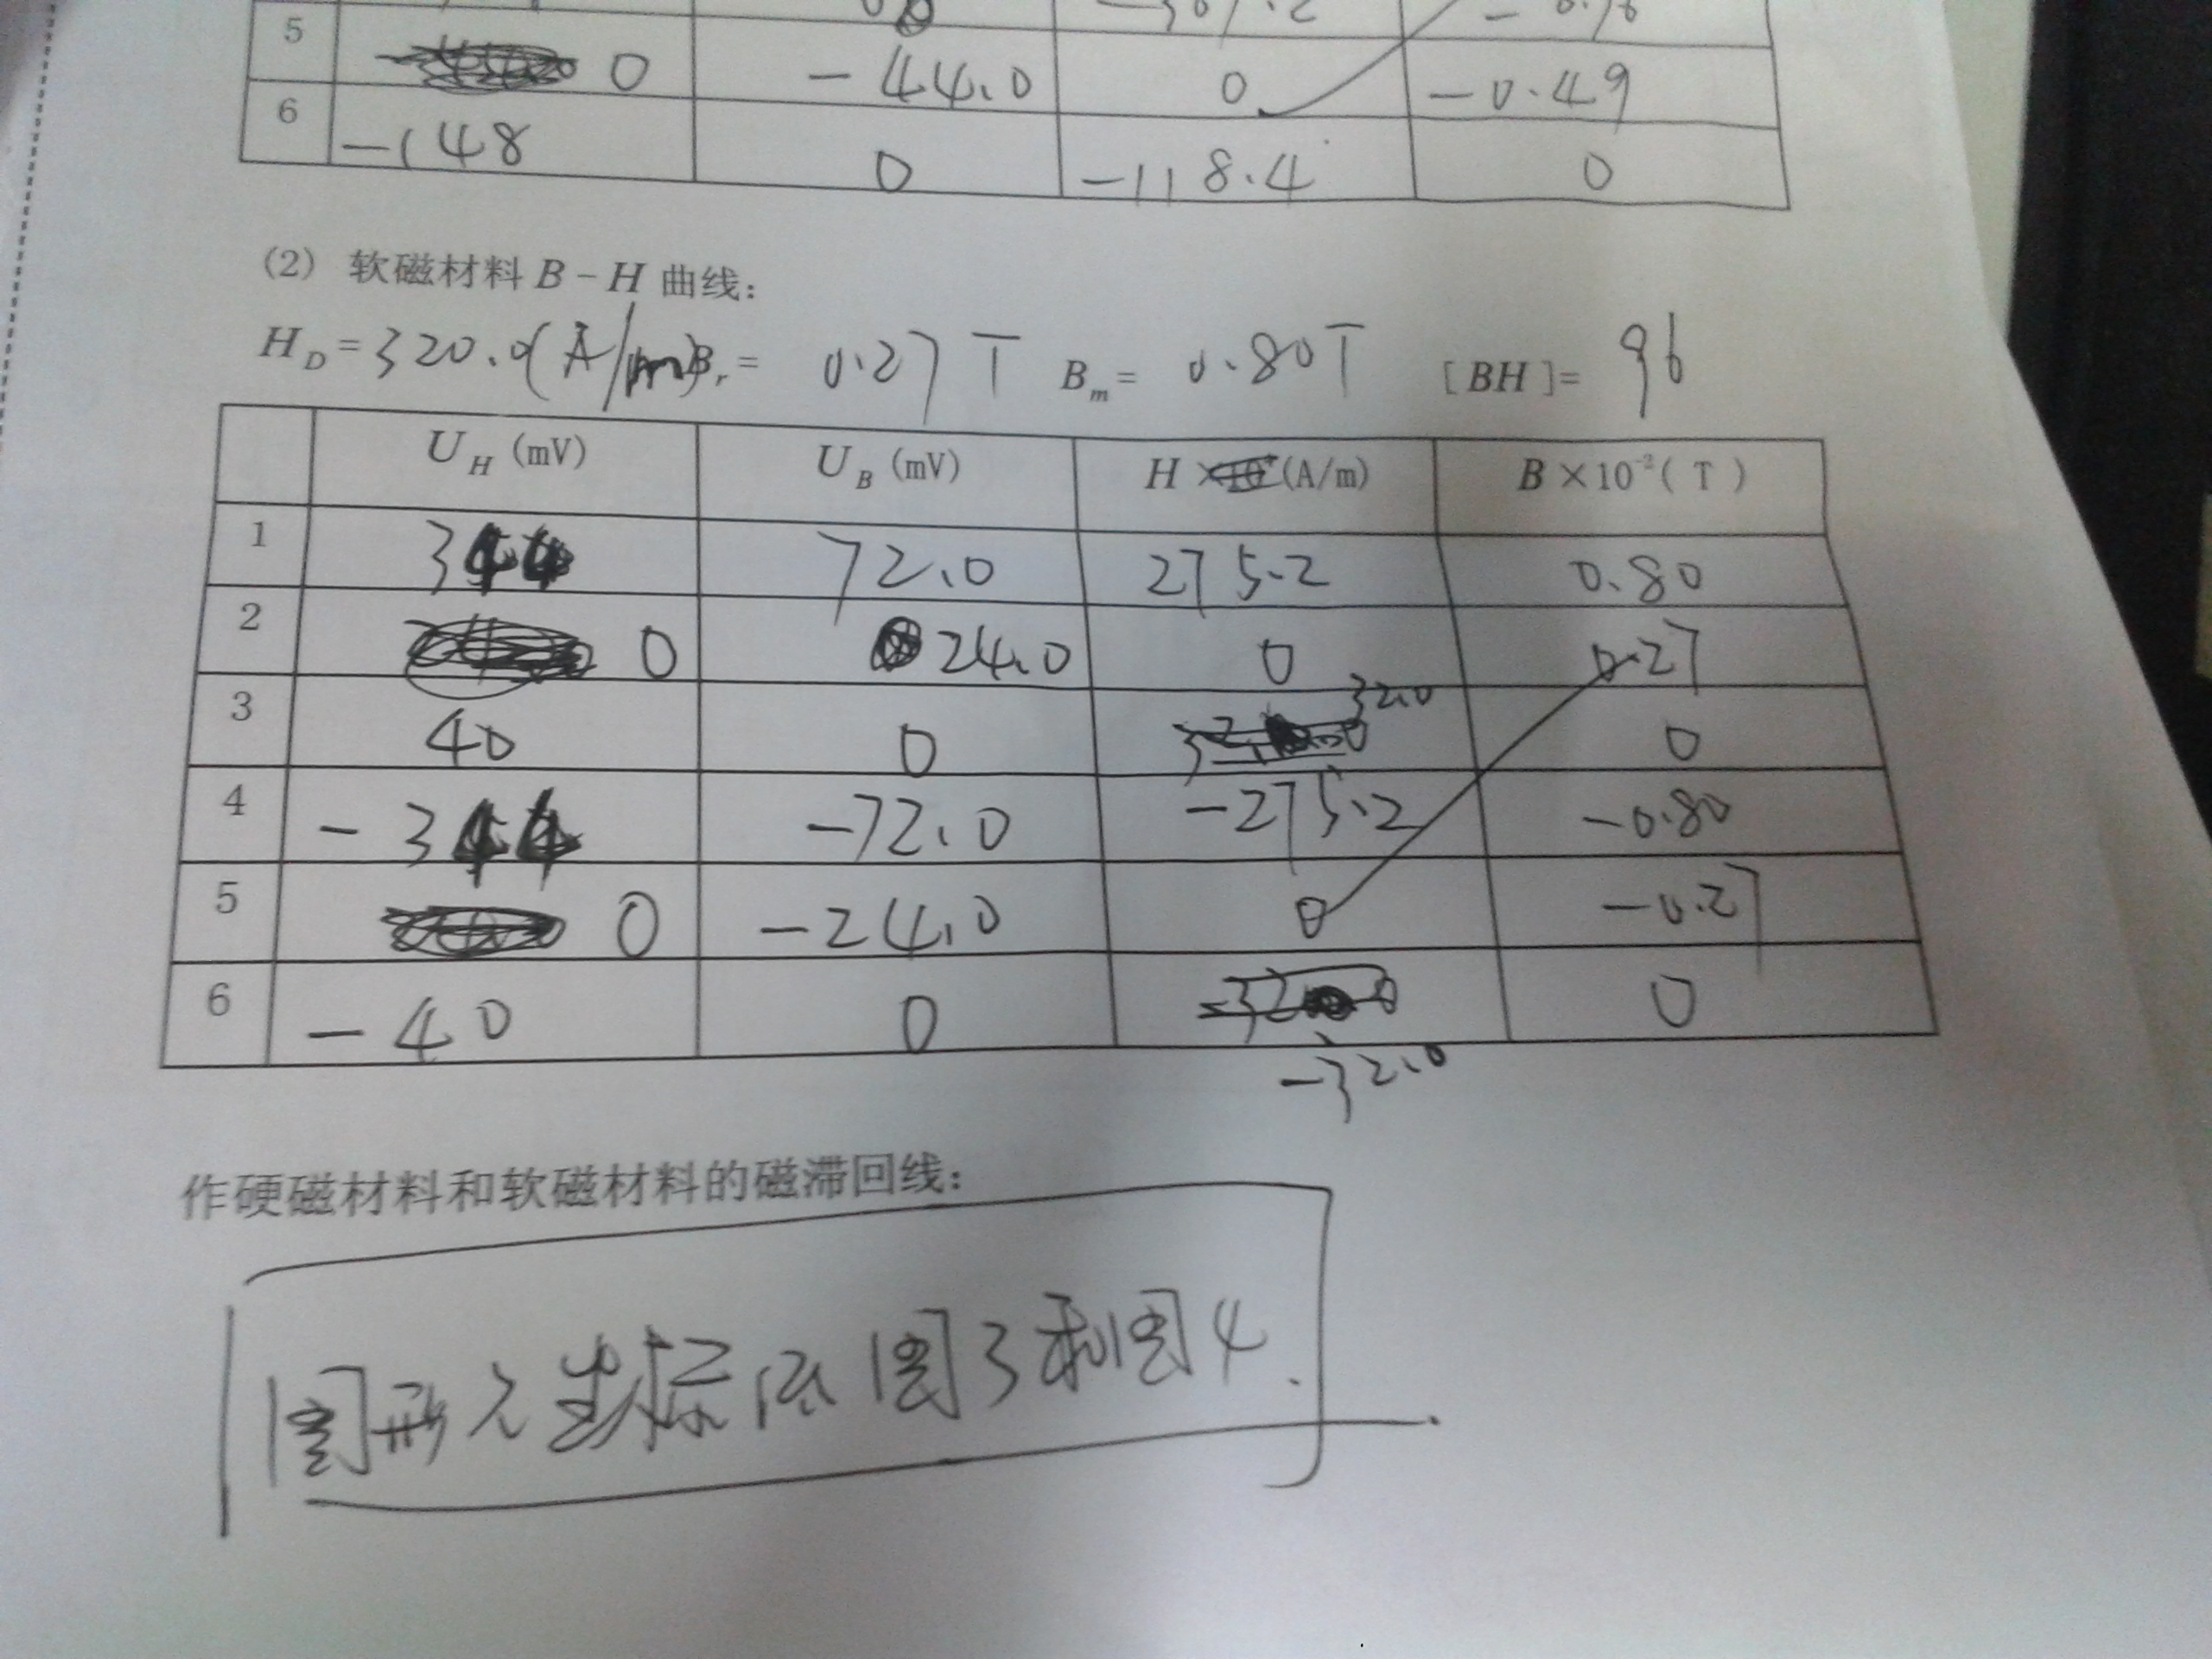 5 0 -44.0 0 -0.49
6 -148 0 -118.4 0
(2) 软磁材料 B-H 曲线:
H_D=320.0(A/m) B_r= 0.27T B_m= 0.80T [BH]= 96
U_H (mV) U_B (mV) H (A/m) B×10⁻²( T )
1 344 72.0 275.2 0.80
2 0 24.0 0 0.27
3 40 0 32.0 0
4 -344 -72.0 -275.2 -0.80
5 0 -24.0 0 -0.27
6 -40 0 -32.0 0
作硬磁材料和软磁材料的磁滞回线:
图形 坐标 图3和图4.